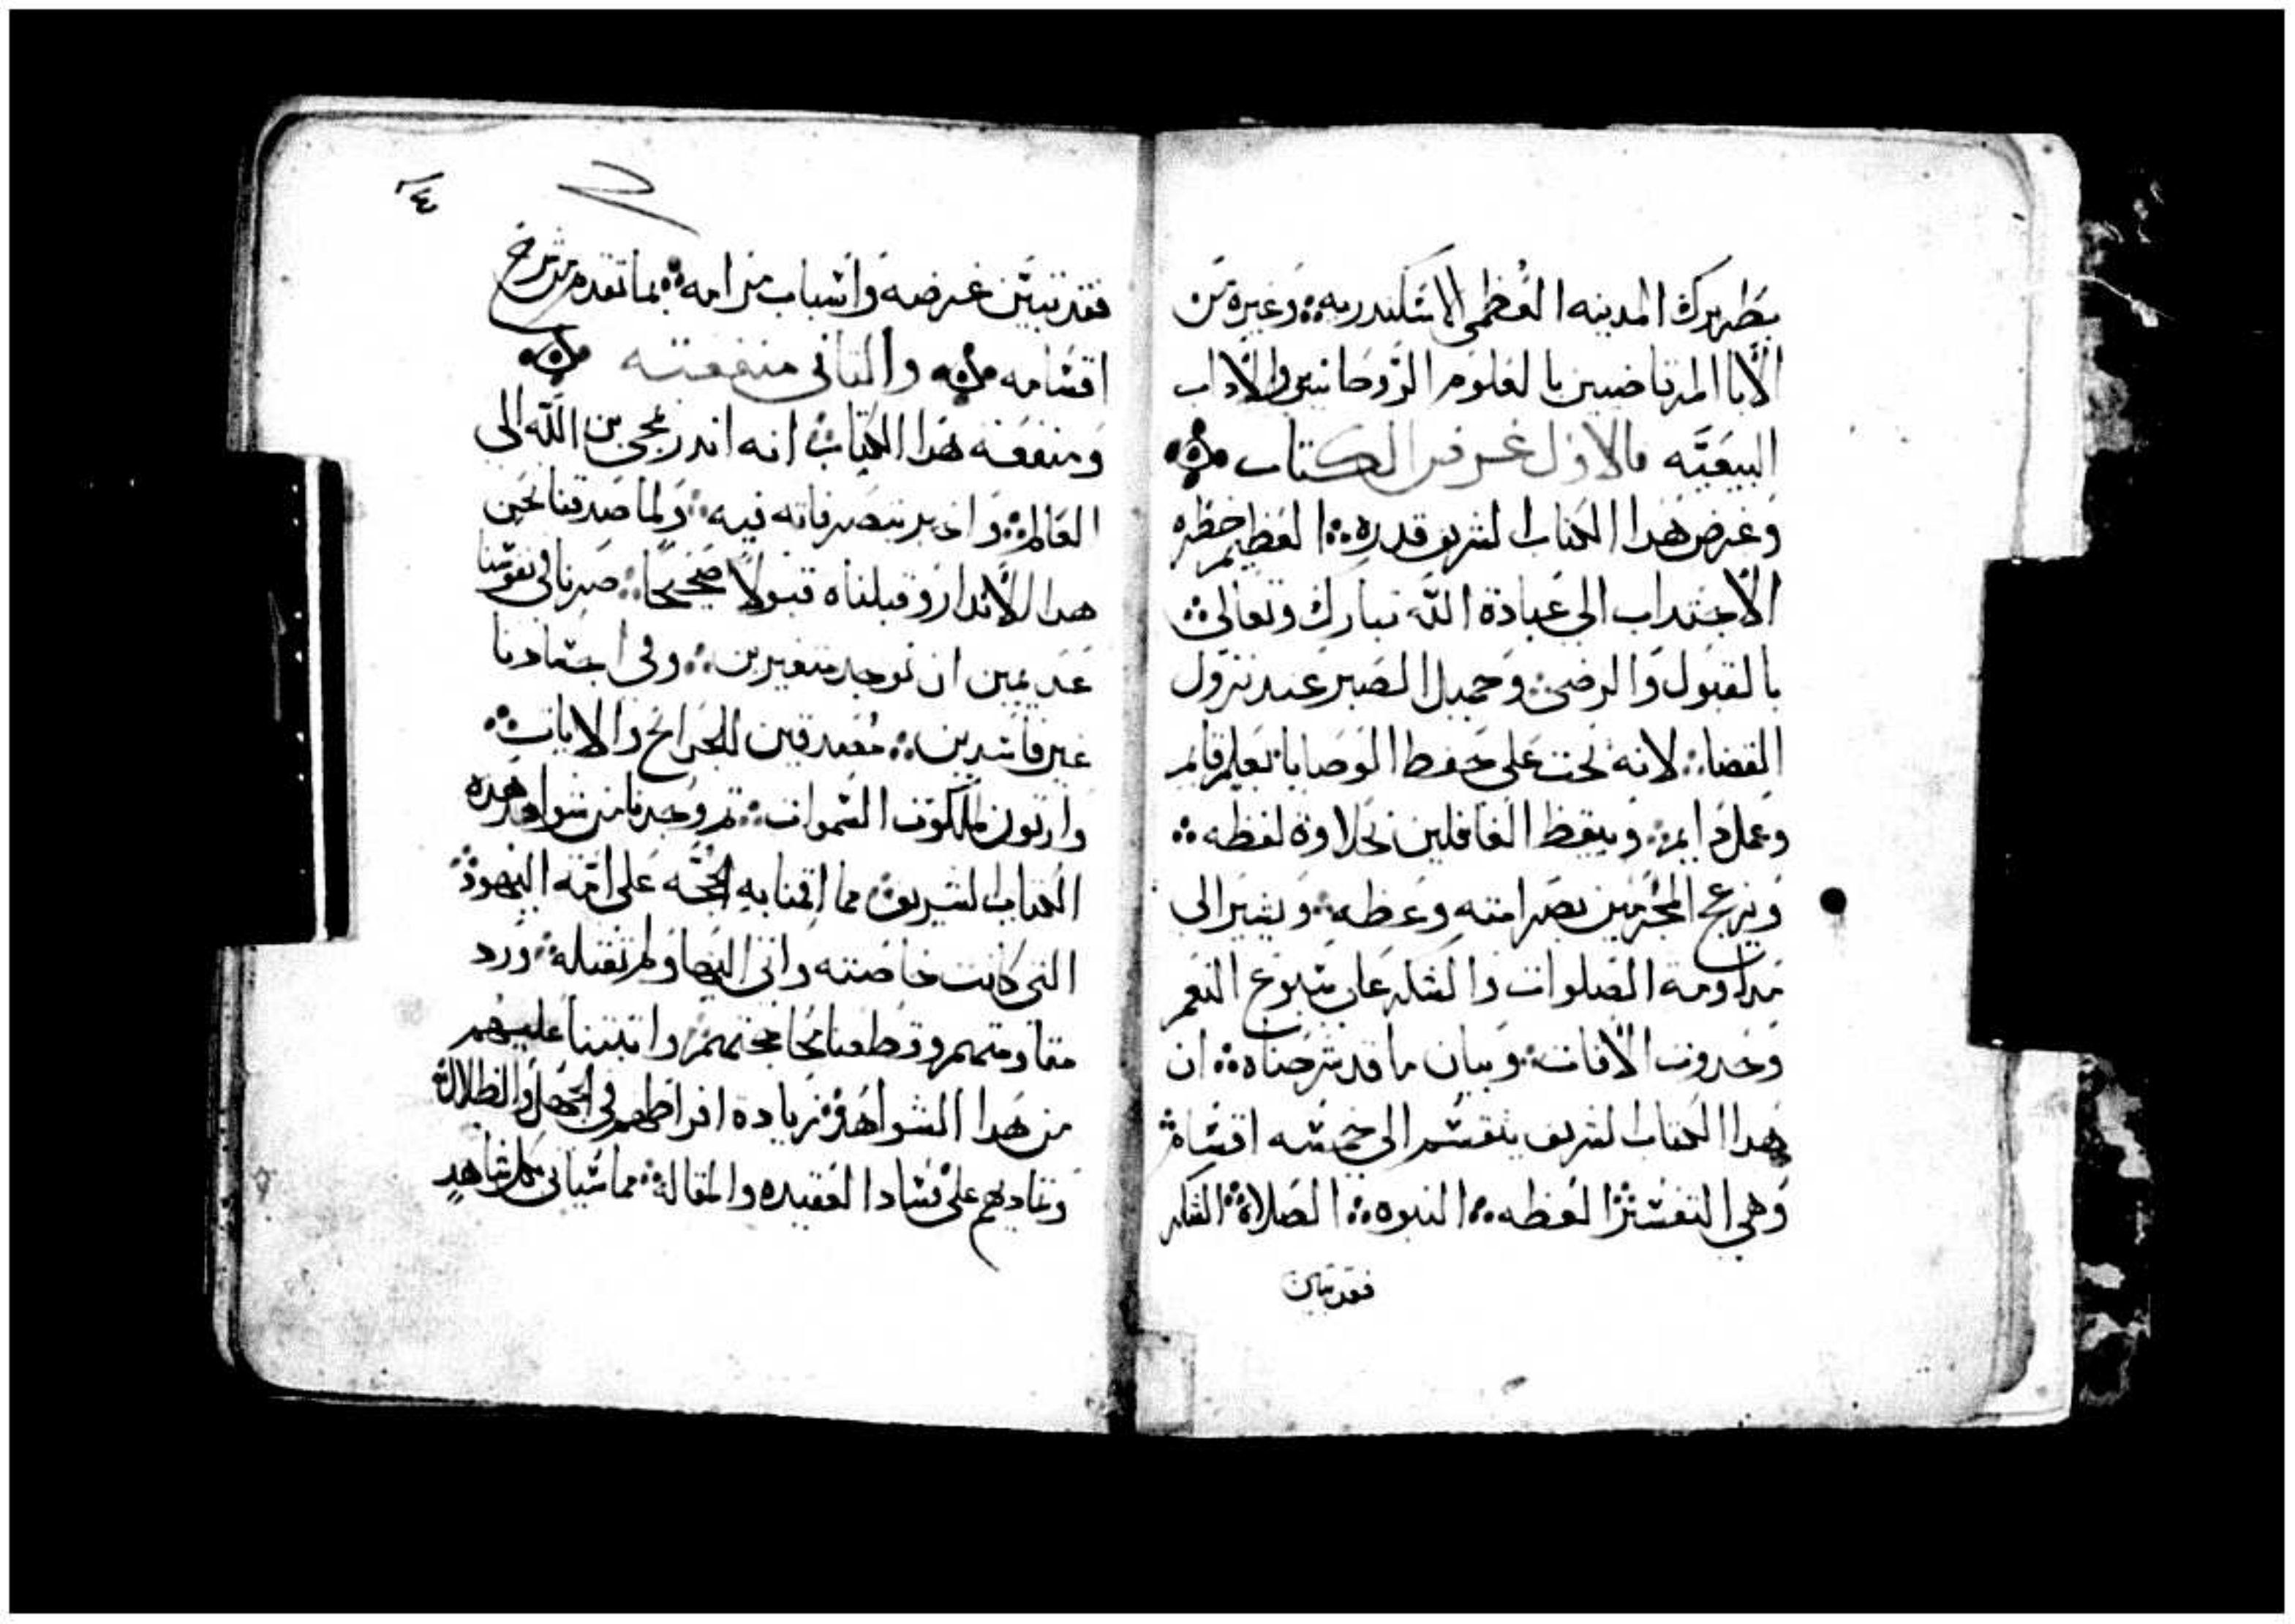 بطريرك المدينه العظمي الاسكندريه وغيره من
الابا المرتاضيين بالعلوم الروحانيين والاداب
البيعيه فالاول غرض الكتاب
وغرض هدا الكتاب الشريف قدره العظيم خطره
الاجتداب الي عبادة الله تبارك وتعالي
بالقبول والرضي وجميل الصبر عند نزول
القضا لانه يحت علي حفظ الوصايا بتعليم قايم
وعمل دايم ويتيقظ الغافلين بحلاوة لفظه
ويزعج المجرمين بصرامته وعظه ويشير الي
مداومة الصلوات والشكر علي سبوغ النعم
وحدوت الافات وبيان ما قد شرحناه ان
هدا الكتاب الشريف ينقسم الي خمسه اقسام
وهي التفسير العظه النبوه الصلاة الشكر
فقد تبين
٤
فقد تبين غرضه واسباب مرامه بما تقدم من شرح
اقسامه والتاني منفعته
ومنفعته هدا الكتاب انه اندر بمجي بن الله الي
العالم واخبر بتصرفاته فيه ولما صدقنا نحن
هدا الاندار وقبلناه قبولا صحيحا صرنا في نفوسنا
عديمين ان نوجد متغيرين وفي اجسادنا
غير فاسدين مصدقين للجرائح والايات
وارتون لملكوت السموات تم وجدنا من شواهد هده
الكتاب الشريف مما اقمنا به الحجه علي امة اليهود
التي كانت خاصته واتي اليها ولم تقبله ورد
مقاومتهم وقطعنا محاججتهم واتبتنا عليهم
من هدا الشواهد زيادة افراطهم في الجهل والظلالة
وتماديهم علي فساد العقيده والمقالة مما سياتي بكل شاهد